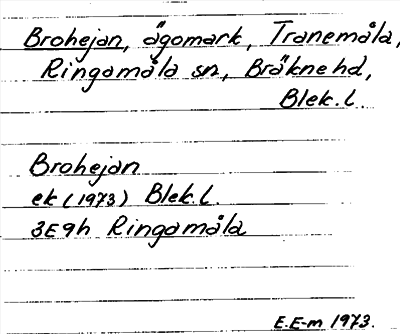 Brohejan, ägomark, Tranemåla,
Ringamåla sn, Bräkne hd,
Blek. l.
Brohejan
ek (1973) Blek. l.
3E9h Ringamåla
E.E-m 1973.